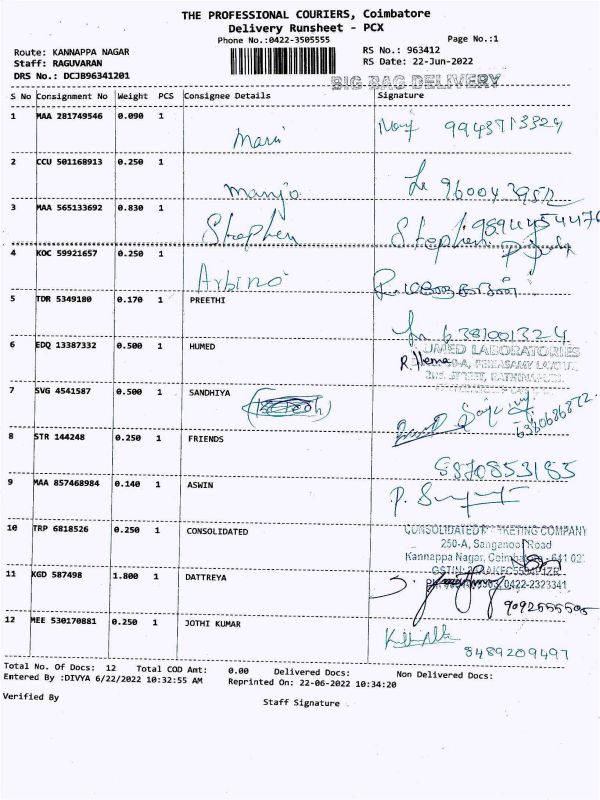 THE PROFESSIONAL COURIERS, Coimbatore
Delivery Runsheet - PCX
Phone No.:0422-3505555 Page No.:1
Route: KANNAPPA NAGAR RS No.: 963412
Staff: RAGUVARAN RS Date: 22-Jun-2022
DRS No.: DCJB96341201
BIG BAG DELIVERY
S No Consignment No Weight PCS Consignee Details Signature
1 MAA 281749546 0.090 1
Mani
2 CCU 501168913 0.250 1
Manjo
3 MAA 565133692 0.830 1
Stephen Stephen
4 KOC 59921657 0.250 1
5 TDR 5349180 0.170 1 PREETHI
6381001324
6 EDQ 13387332 0.500 1 HUMED
UMED LABORATORIES
R. Hema
7 SVG 4541587 0.500 1 SANDHIYA
8 STR 144248 0.250 1 FRIENDS
9 MAA 857468984 0.140 1 ASWIN
10 TRP 6818526 0.250 1 CONSOLIDATED
250-A, Sanganoor Road
Kannappa Nagar,
0422-2323341
11 KGD 587498 1.800 1 DATTREYA
12 MEE 530170881 0.250 1 JOTHI KUMAR
8489209497
Total No. Of Docs: 12 Total COD Amt: 0.00 Delivered Docs: Non Delivered Docs:
Entered By :DIVYA 6/22/2022 10:32:55 AM Reprinted On: 22-06-2022 10:34:20
Verified By Staff Signature